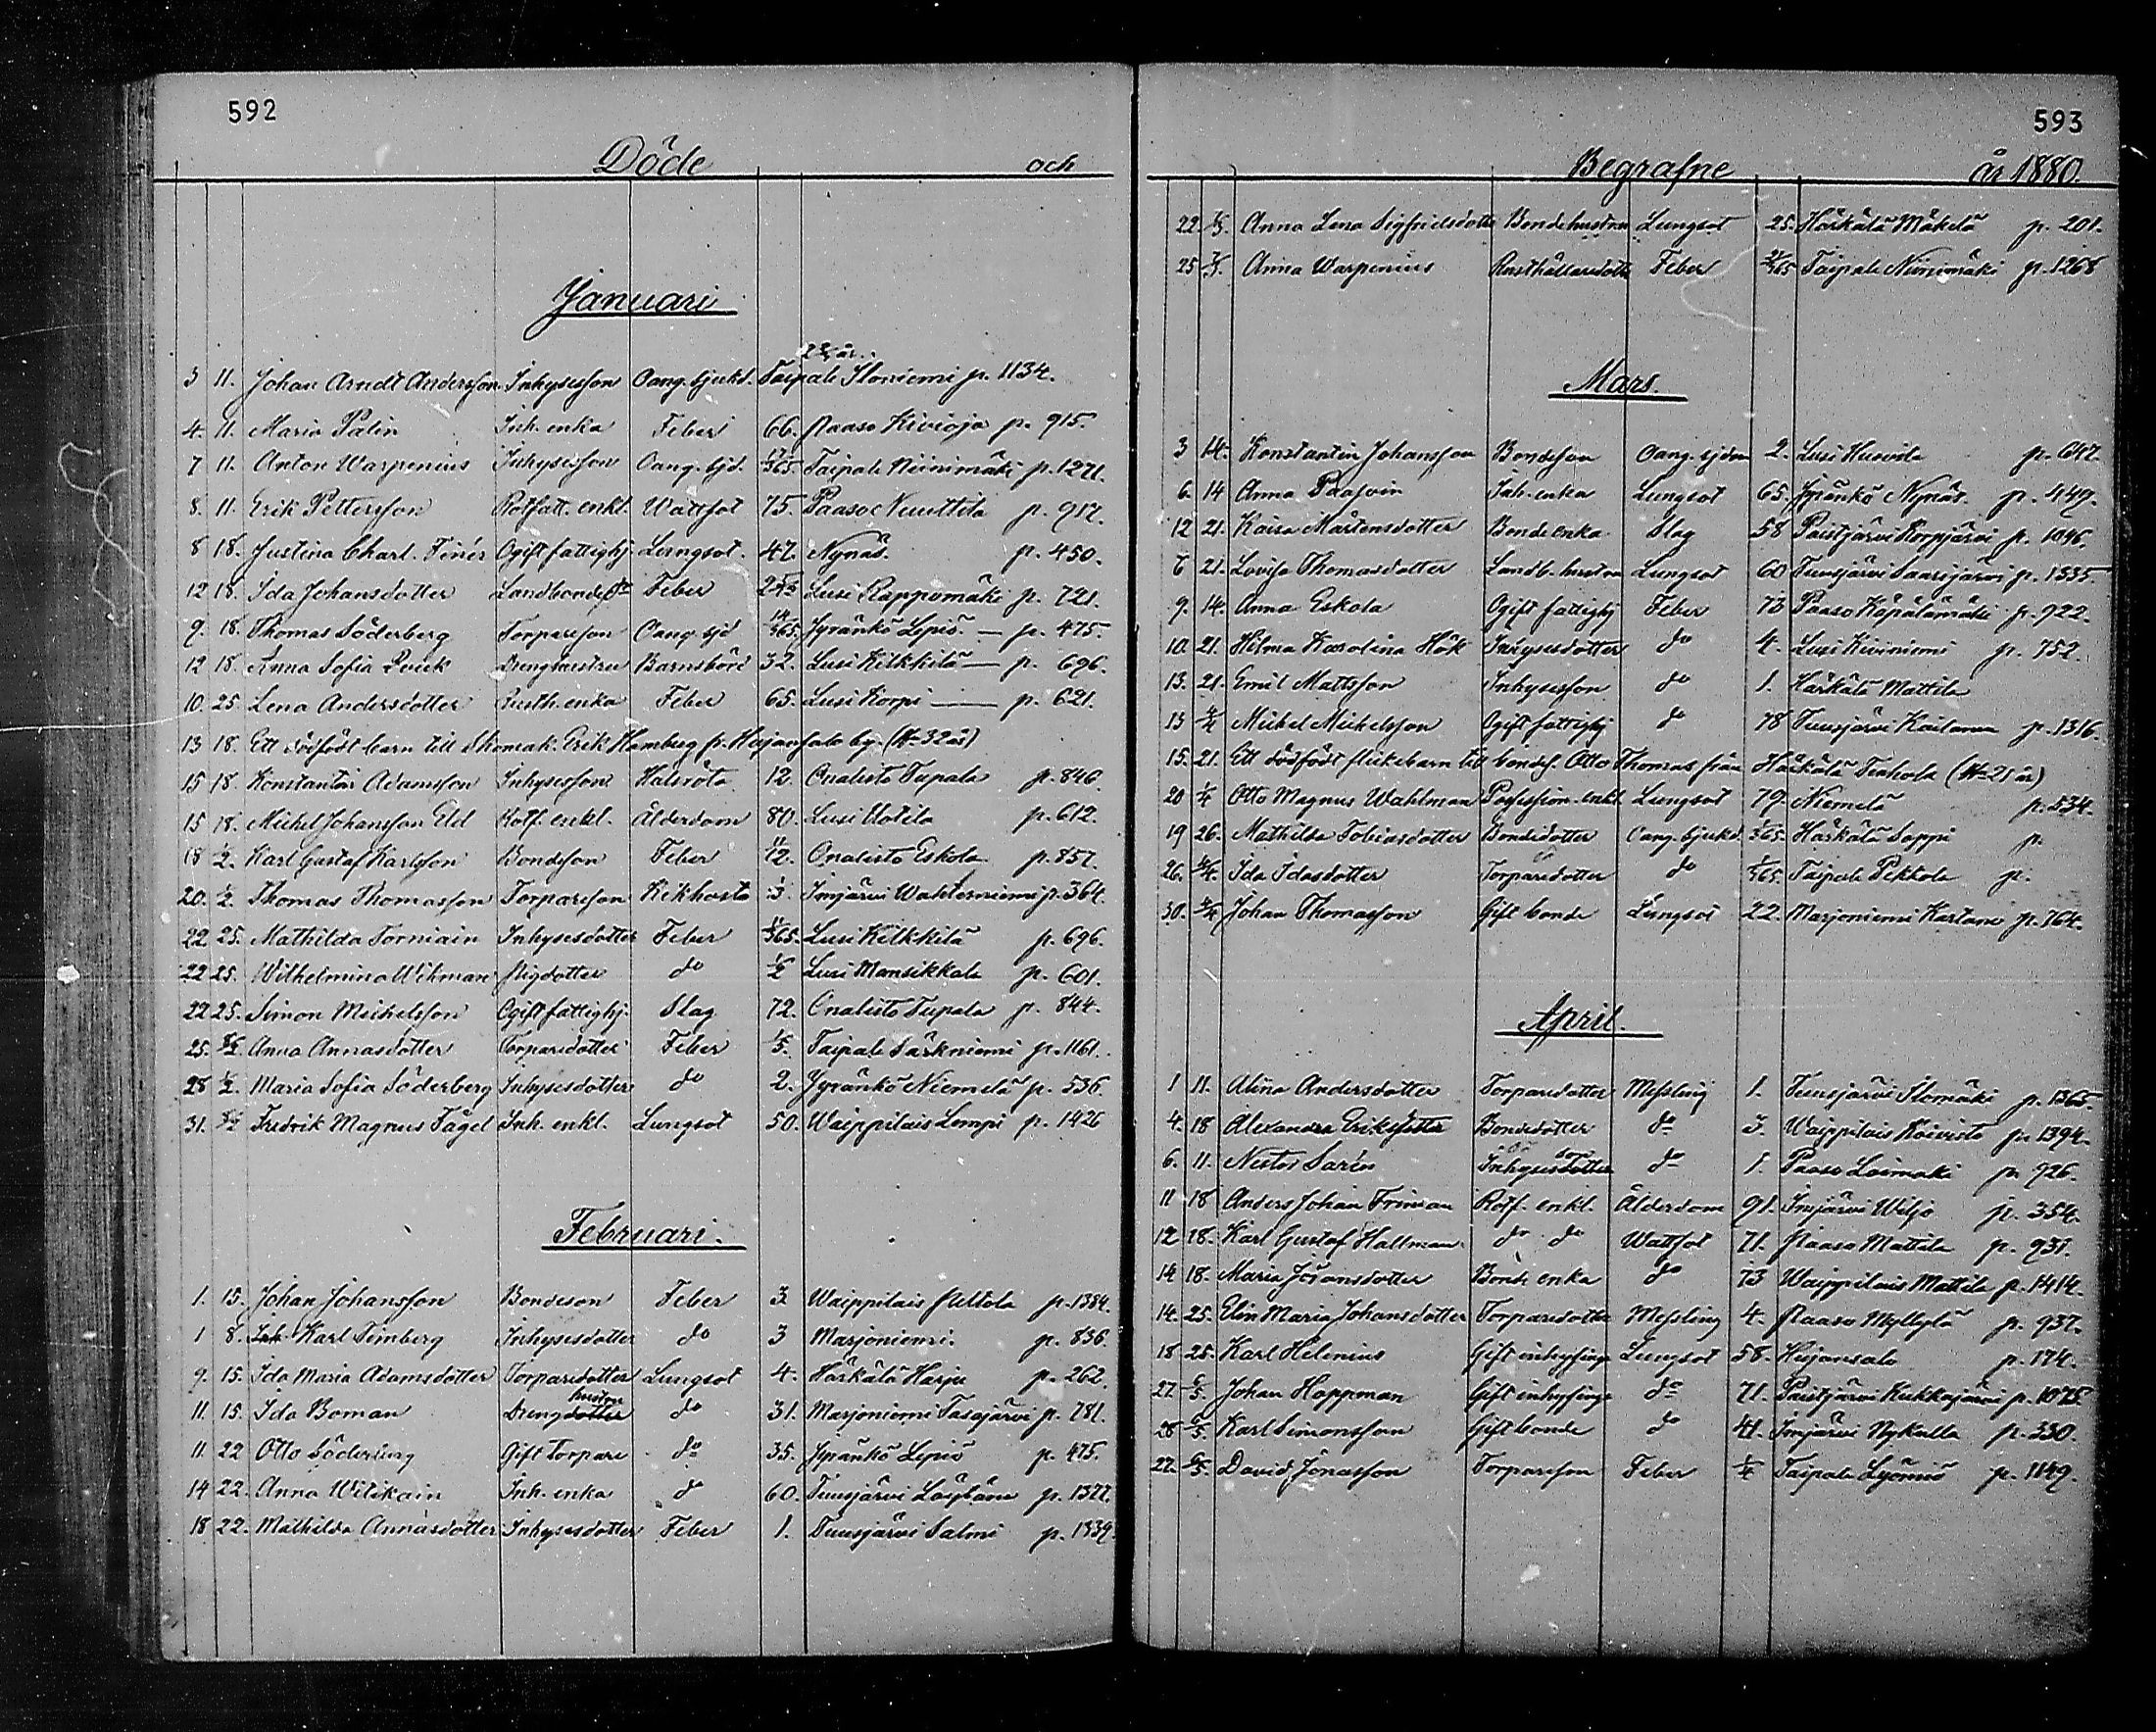 592
Döde och
Januari
2 ¾ år.
3 11. Johan Arndt Andersson Inhysesson Oang. sjukd. Taipale Iloniemi p. 1134.
4. 11. Maria Palin Inh. enka Feber 66. Paaso Kivioja p. 915.
7 11. Anton Warpenius Inhysesson Oang. sjd. 17/365 Taipale Niinimäki p. 1271.
8. 11. Erik Pettersson Rotfatt. enkl. Wattsot 75. Paaso Nuuttila p. 917.
8 18. Justina Charl. Finér Ogift fattighj Lungsot. 47. Nynäs. p. 450.
12 18. Ida Johansdotter Feber Lusi Rappumäki p. 721.
9. 18. Thomas Söderberg Torpareson Oang. sjd 14/365 Jyränkö Lepis. — p. 475.
12 18. Anna Sofia Drenghustru Barnsbörd 32. Lusi Kilkkilä — p. 696.
10. 25 Lena Andersdotter Rusth. enka Feber 65. Lusi Korpi — p. 621.
13 18. Ett dödfödt barn till Skomak. Erik Hamberg fr. Heijansalo by. (H. 32 år)
15 18. Konstantin Adamsson Inhysesson Halsröta 12. Onalisto Tupala p. 846.
15 18. Michel Johansson Eld Rotf. enkl. Ålderdom 80. Lusi Uotila p. 612.
18 1/2. Karl Gustaf Karlsson Bondeson Feber 11/12. Onalisto Eskola p. 857.
20. 1/2. Thomas Thomasson Torpareson Kikhosta 1/3. Imjärvi Wahterniemi p. 364.
22. 25. Mathilda Torniain Inhysesdotter Feber 11/365. Lusi Kilkkilä p. 696.
22 25. Wilhelmina Wihman Pigdotter do 1/2 Lusi Mansikkala p. 601.
22 25. Simon Michelsson Ogift fattighj. Slag 72. Onalisto Tupala p. 844.
25. 8/2. Anna Annasdotter Torparedotter Feber 1/5. Taipale Särkniemi p. 1161.
28 1/2. Maria Sofia Söderberg Inhysesdotter do 2. Jyränkö Niemelä p. 536.
31. 8/2 Fredrik Magnus Fågel Inh. enkl. Lungsot 50. Waippilais Lempi p. 1426
Februari.
1. 15. Johan Johansson Bondeson Feber 3 Waippilais Peltola p. 1384.
1 8. Karl Temberg Inhysesdotter do 3 Marjoniemi. p. 836.
9. 15. Ida Maria Adamsdotter Torparedotter Lungsot 4. Härkälä Harju p. 262.
hustru
11. 15. Ida Boman Drengdotter do 31. Marjoniemi Tasajärvi p. 781.
11. 22 Otto Söderberg Gift Torpare do 35. Jyränkö Lepis p. 475.
14 22. Anna Witikain Inh. enka do 60. Tuusjärvi p. 1377.
18 22. Mathilda Annasdotter Inhysesdotter Feber 1. Tuusjärvi Salmi p. 1339.
593
Begrafne år 1880.
22. 7/3. Anna Lena Sigfridsdotter Bondehustru Lungsot 25. Härkälä Mäkelä p. 201.
25 7/3. Anna Warpenius Rusthållaredotter Feber 21/365 Taipale Niinimäki p. 1268
Mars.
3 14. Konstantin Johansson Bondeson Oang. sjdom 2. Lusi Huovila p. 647.
6. 14 Anna Paajoin Inh. enka Lungsot 65. Jyränkö Nynäs. p. 449.
12 21. Kaisa Mårtensdotter Bonde enka Slag 58 Paistjärvi Korpjärvi p. 1046.
6 21. Lovisa Thomasdotter Landb. hustru Lungsot 60 Tuusjärvi Saarijärvi p. 1335.
9. 14. Anna Eskola Ogift fattighj Feber 73 Paaso Käpälämäki p. 922.
10. 21. Hilma Karolina Hök Inhysesdotter do 4. Lusi Kiviniemi p. 752.
13. 21. Emil Mattsson Inhysesson do 1. Härkälä Mattila
13 4/4 Michel Michelsson Ogift fattighj do 78 Tuusjärvi p. 1316.
15. 21. Ett dödfödt flickebarn till bondes. Otto Thomas från Härkälä Teahola (H. 21 år)
20 1/4 Otto Magnus Wahlman Possession. enkl. Lungsot 79. Niemelä p. 534.
19 26. Mathilda Tobiasdotter Bondedotter Oang. sjukd. 3/365. Härkälä Soppi p.
26. 4/4. Ida Idasdotter Torparedotter do 1/365. Taipale Pekkola p.
30. 4/4 Johan Thomasson Gift bonde Lungsot 22. Marjoniemi Kartano p. 764.
April.
1 11. Alina Andersdotter Torparedotter Messling 1. Tuusjärvi Ilomäki p. 1365.
4. 18 Alexandra Eriksdotter Bondedotter do 3. Waippilais Koivisto p. 1394.
son
6. 11. Nestor Sarén Inhysesdotter do 1. Paaso Loimaki p. 926.
11 18 Anders Johan Friman Rotf. enkl. Ålderdom 91. Imjärvi Wiljo p. 354.
12 18. Karl Gustaf Hallman. do do Wattsot 71. Paaso Mattila p. 931.
14 18. Maria Johansdotter Bonde enka do 73 Waippilais Mattila p. 1414.
14. 25. Elin Maria Johansdotter Torparedotter Messling 4. Paaso Myllylä p. 937.
18 25. Karl Helenius Gift inhysing Lungsot 58. Heijansalo p. 174.
27. 6/5. Johan Hoppman Gift inhysinge do 71. Paistjärvi Kukkojärvi p. 1075
28 6/5. Karl Simonsson Gift bonde do 41. Imjärvi Nykulla p. 330.
22. 6/5. David Jonasson Torpareson Feber 1/4 Taipale Lyömiö p. 1149.